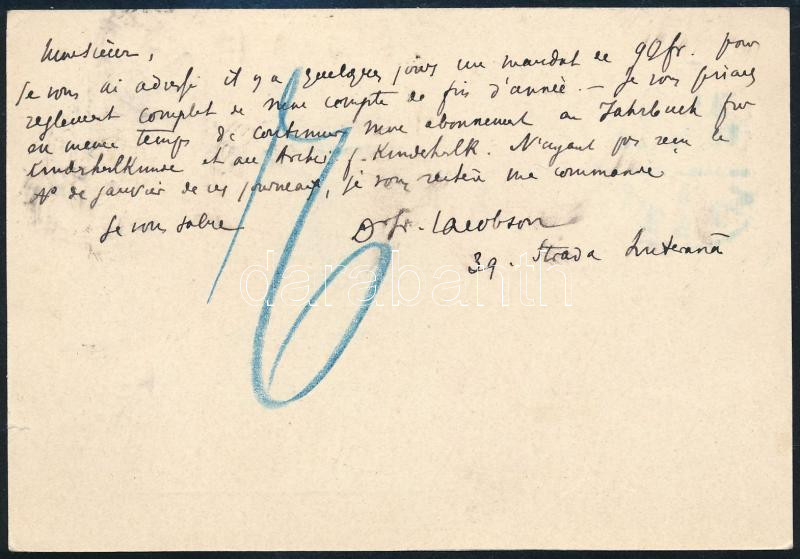 Monsieur,
Je vous ai adressé il y a quelques jours un mandat de 90 fr. pour
règlement complet de mon compte de fin d'année. — Je vous priais
en même temps de continuer mon abonnement au Jahrbuch für
Kinderheilkunde et au Archiv f. Kinderheilk. N'ayant pas reçu le
No de janvier de ces journeaux, je vous réitère ma commande
Je vous salue
Dr Jacobson
39. Strada Luterană
darabanth